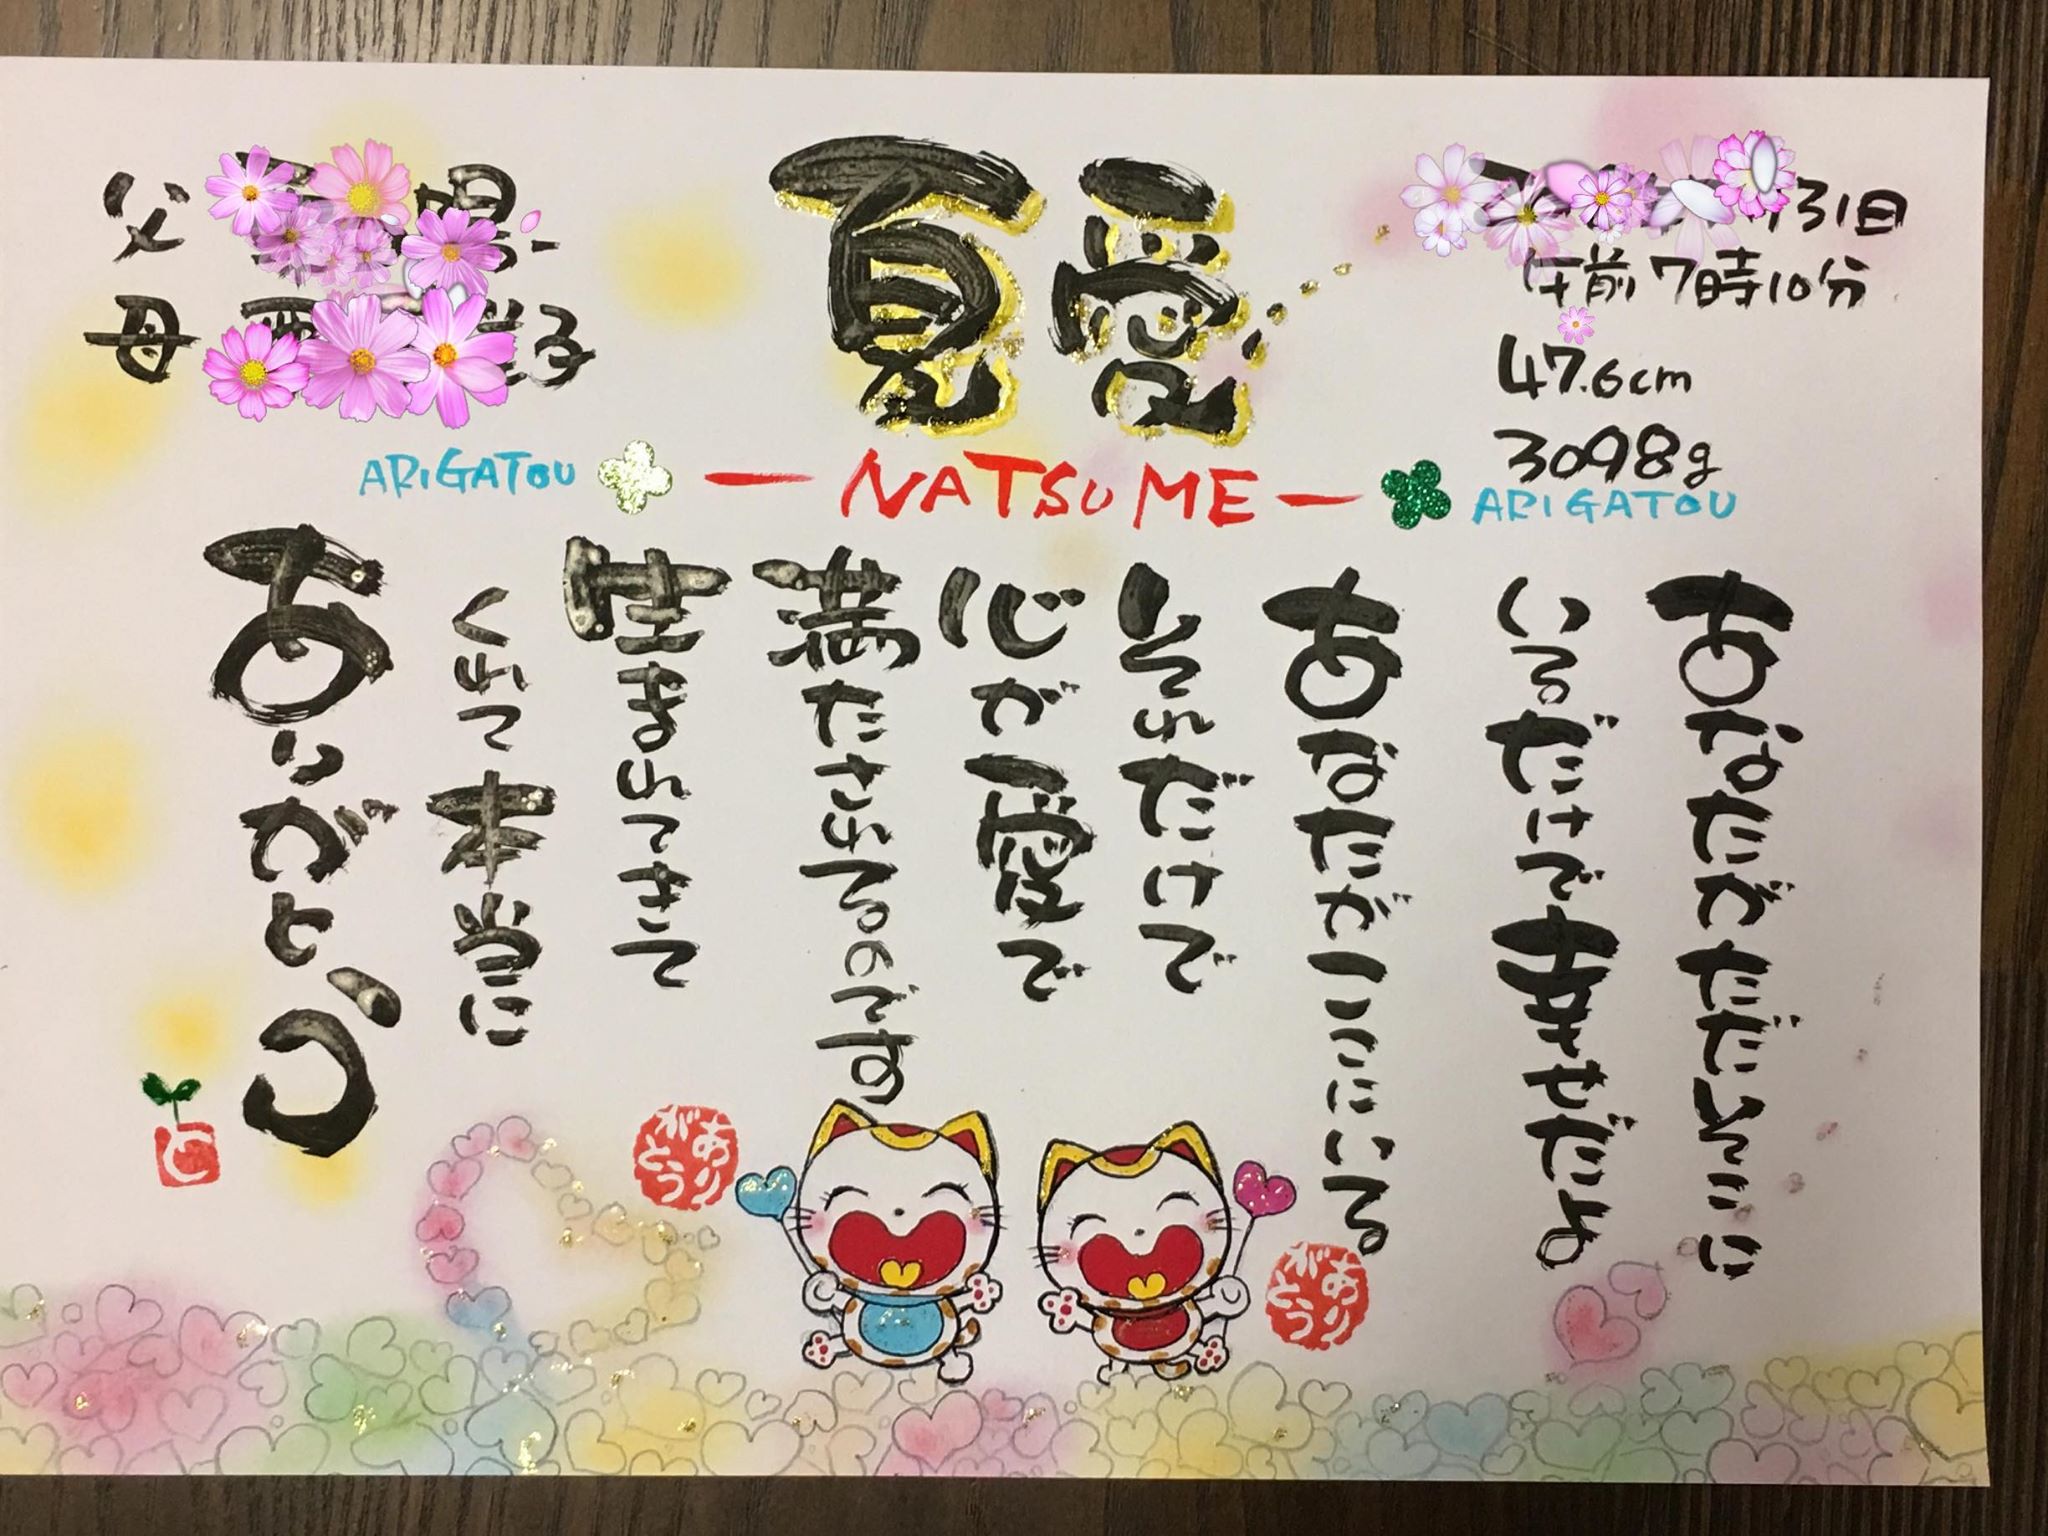 夏愛
父
母
31日
午前7時10分
47.6cm
3098g
ARIGATOU
— NATSUME —
ARIGATOU
あなたがただそこに
いるだけで幸せだよ
あなたがここにいる
それだけで
心が愛で
満たされるのです
生まれてきて
くれて本当に
ありがとう
ありがとう
ありがとう